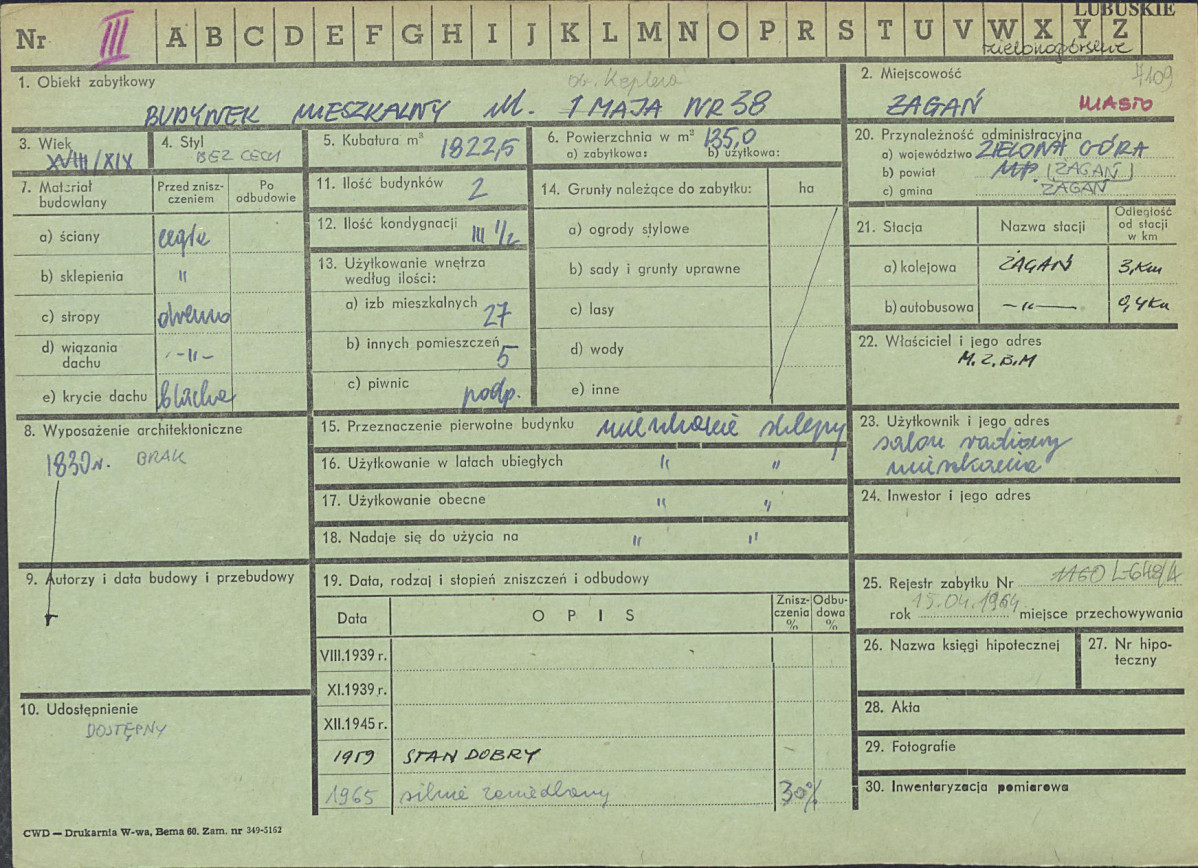 LUBUSKIE
Nr III A B C D E F G H I J K L M N O P R S T U V W X Y Z
zielonogórskie
1. Obiekt zabytkowy
ob. Keplera
BUDYNEK MIESZKALNY Ul. 1 MAJA NR 38
2. Miejscowość
7109
ŻAGAŃ MIASTO
3. Wiek
XVIII/XIX
4. Styl
BEZ CECH
5. Kubatura m³ 1822,5
6. Powierzchnia w m² 135,0
a) zabytkowa: b) użytkowa:
20. Przynależność administracyjna
a) województwo ZIELONA GÓRA
b) powiat MP. [ŻAGAŃ]
c) gmina ŻAGAŃ
7. Materiał budowlany
Przed zniszczeniem
Po odbudowie
a) ściany cegła
b) sklepienia "
c) stropy drewno
d) wiązania dachu -"-
e) krycie dachu blacha
11. Ilość budynków 2
12. Ilość kondygnacji III 1/2
13. Użytkowanie wnętrza według ilości:
a) izb mieszkalnych 27
b) innych pomieszczeń 5
c) piwnic podp.
14. Grunty należące do zabytku: ha
a) ogrody stylowe
b) sady i grunty uprawne
c) lasy
d) wody
e) inne
21. Stacja
Nazwa stacji
Odległość od stacji w km
a) kolejowa ŻAGAŃ 3,Km
b) autobusowa -"- 0,4Km
22. Właściciel i jego adres
M.Z.B.M
8. Wyposażenie architektoniczne
1830 r. BRAK
9. Autorzy i data budowy i przebudowy
10. Udostępnienie
DOSTĘPNY
15. Przeznaczenie pierwotne budynku mieszkanie sklepy
16. Użytkowanie w latach ubiegłych " "
17. Użytkowanie obecne " "
18. Nadaje się do użycia na " "
23. Użytkownik i jego adres
salon radiowy
mieszkania
24. Inwestor i jego adres
19. Data, rodzaj i stopień zniszczeń i odbudowy
Data
O P I S
Zniszczenia %
Odbudowa %
VIII.1939 r.
XI.1939 r.
XII.1945 r.
1959 STAN DOBRY
1965 silnie zaniedbany 30%
25. Rejestr zabytku Nr 1160 L-648/A
rok 15.04.1964 miejsce przechowywania
26. Nazwa księgi hipotecznej
27. Nr hipoteczny
28. Akta
29. Fotografie
30. Inwentaryzacja pomiarowa
CWD — Drukarnia W-wa, Bema 60. Zam. nr 349-5162